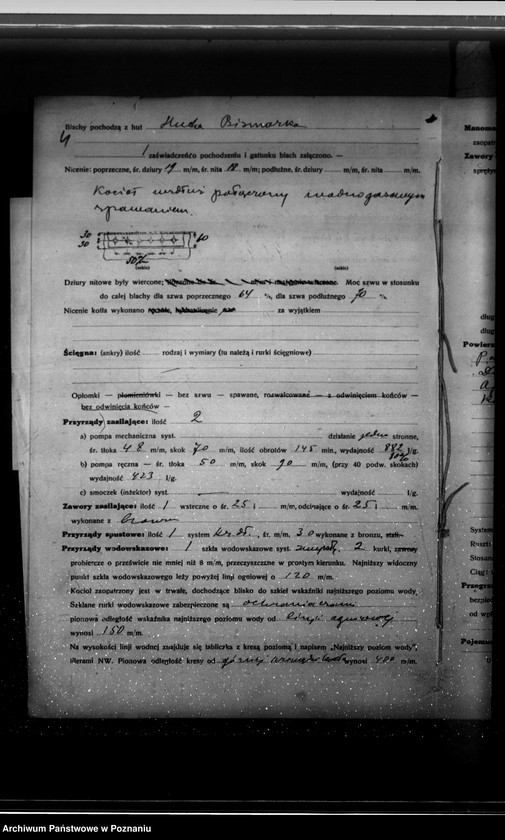 Blachy pochodzą z hut Huta Bismarka
1 zaświadczeńco pochodzeniu i gatunku blach załączono. —
Nicenie: poprzeczne, śr. dziury 19 m/m, śr. nita 18 m/m; podłużne, śr. dziury m/m, śr. nita m/m.
Kocioł wzdłuż połączony wodnogazowym
spawaniem.
30
30
60
(szkic) (szkic)
Dziury nitowe były wiercone; Moc szwu w stosunku
do całej blachy dla szwa poprzecznego 64 %, dla szwa podłużnego 70 %
Nicenie kotła wykonano za wyjątkiem
Ścięgna: (ankry) ilość rodzaj i wymiary (tu należą i rurki ścięgniowe)
Opłomki — płomieniówki — bez szwu — spawane, rozwalcowane — z odwinięciem końców —
bez odwinięcia końców —
Przyrządy zasilające: ilość 2
a) pompa mechaniczna syst. działanie jedno stronne,
śr. tłoka 48 m/m, skok 70 m/m, ilość obrotów 145 min., wydajność 882 l/g.
b) pompa ręczna — śr. tłoka 50 m/m, skok 90 m/m, (przy 40 podw. skokach)
wydajność 423 l/g.
c) smoczek (inżektor) syst. wydajność l/g.
Zawory zasilające: ilość 1 wsteczne o śr. 25 i m/m, odcinające o śr. 25 i m/m.
wykonane z bronzu
Przyrządy spustowe: ilość 1 system , śr. m/m. 30 wykonane z bronzu, stali.
Przyrządy wodowskazowe: 1 szkła wodowskazowe syst. zwykły, 2 kurki, zawory
probiercze o prześwicie nie mniej niż 8 m/m, przeczyszczane w prostym kierunku. Najniższy widoczny
punkt szkła wodowskazowego leży powyżej linji ogniowej o 120 m/m.
Kocioł zaopatrzony jest w trwałe, dochodzące blisko do szkieł wskaźniki najniższego poziomu wody.
Szklane rurki wodowskazowe zabezpieczone są ochraniaczami
pionowa odległość wskaźnika najniższego poziomu wody od linji ogniowej
wynosi 150 m/m.
Na wysokości linji wodnej znajduje się tabliczka z kresą poziomą i napisem „Najniższy poziom wody",
literami NW. Pionowa odległość kresy od górnej wynosi 400 m/m.
Manoma
zaopatr
Zawory
spręży
dług
dług
Powierz
System
Ruszti
Stosan
Ciąg:
Przegrz
bezpie
od węt
Pojemn
Archiwum Państwowe w Poznaniu